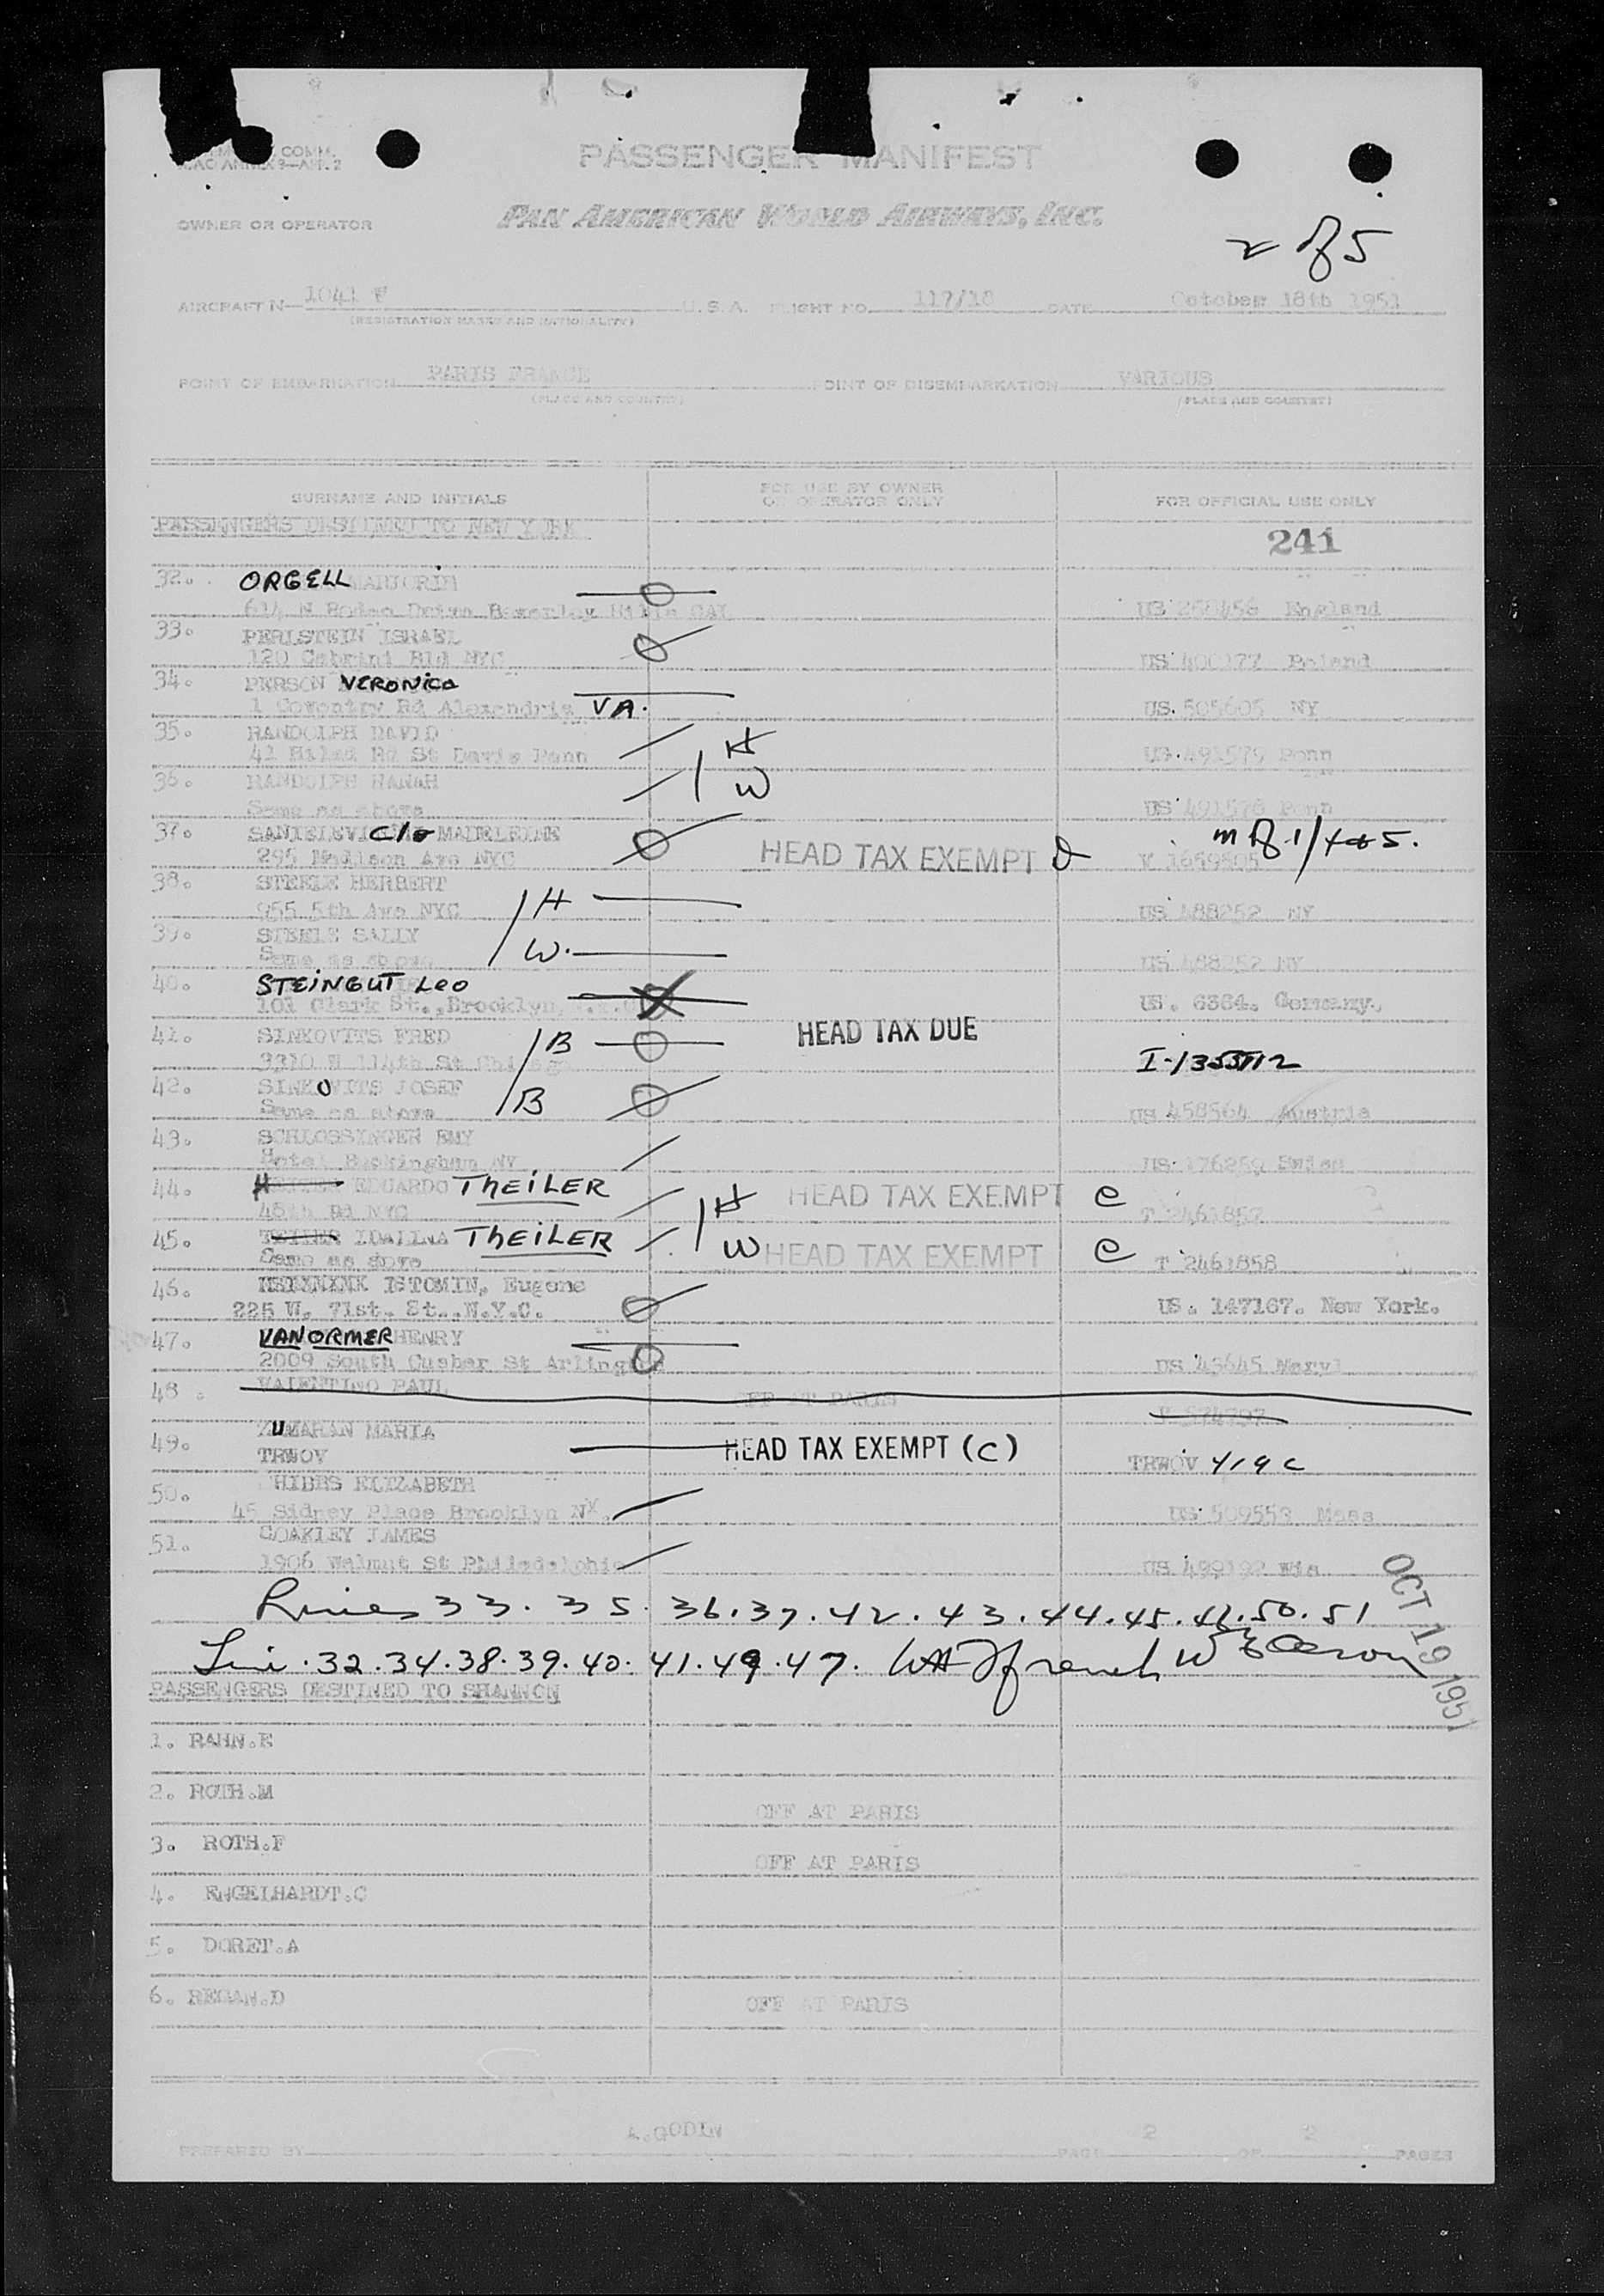 COMM.
PASSENGER MANIFEST
OWNER OR OPERATOR
PAN AMERICAN WORLD AIRWAYS, INC.
2 of 5
AIRCRAFT N— 1041 V U.S.A. FLIGHT NO. 117/18 DATE October 18th 1951
(REGISTRATION MARKS AND NATIONALITY)
POINT OF EMBARKATION PARIS FRANCE POINT OF DISEMBARKATION VARIOUS
(PLACE AND COUNTRY) (PLACE AND COUNTRY)
SURNAME AND INITIALS FOR USE BY OWNER OR OPERATOR ONLY FOR OFFICIAL USE ONLY
PASSENGERS DESTINED TO NEW YORK
241
32. ORGELL MARJORIE
614 N Rodeo Drive Beverley Hills CAL US 268456 England
33. PERLSTEIN ISRAEL
120 Cabrini Bld NYC US 400177 Poland
34. PERSON VERONICA
1 Coventry Rd Alexandria VA. US. 505605 NY
35. RANDOLPH DAVID
41 Rd St Davis Penn H US 491579 Penn
36. RANDOLPH HANAH W
Same as above US 491578 Penn
37. c/o MADELEINE
295 Madison Ave NYC HEAD TAX EXEMPT
38. STEELE HERBERT H
955 5th Ave NYC US 488252 NY
39. STEELE SALLY W.
Same as above US 488252 NY
40. STEINGUT LEO
101 Clark St., Brooklyn, US. 6364. Germany.
41. SINKOVITS FRED B HEAD TAX DUE
3310 W 114th St Chicago
42. SINKOVITS JOSEF B
Same as above US 458564 Austria
43. SCHLOSSINGER EMY
Hotel Buckingham NY US 176259 Swiss
44. EDUARDO THEILER H HEAD TAX EXEMPT C
48th Rd NYC T 2461857
45. IDALINA THEILER W HEAD TAX EXEMPT C
Same as above T 2461858
46. ISTOMIN, Eugene
225 W. 71st. St., N.Y.C. US. 147167. New York.
47. VANORMER HENRY
2009 South St Arlington US 43645 Maryl
48. VALENTINO PAUL OFF AT PARIS
ZUMARAN MARIA
49. TRWOV HEAD TAX EXEMPT (C) TRWOV 419 C
HIBBS ELIZABETH
50. 45 Sidney Place Brooklyn NY US 509553 Mass
COAKLEY JAMES
51. 1906 Walnut St Philadelphia US 499192 Wis
Lines 33. 35. 36. 37. 42. 43. 44. 45. 46. 50. 51
OCT 19 1951
Line. 32. 34. 38. 39. 40. 41. 49. 47.
PASSENGERS DESTINED TO SHANNON
1. RAHN.E
2. ROTH.M OFF AT PARIS
3. ROTH.F OFF AT PARIS
4. ENGELHARDT.C
5. DORET.A
6. REGAN.D OFF AT PARIS
A.GODIN
PREPARED BY PAGE 2 OF 2 PAGES